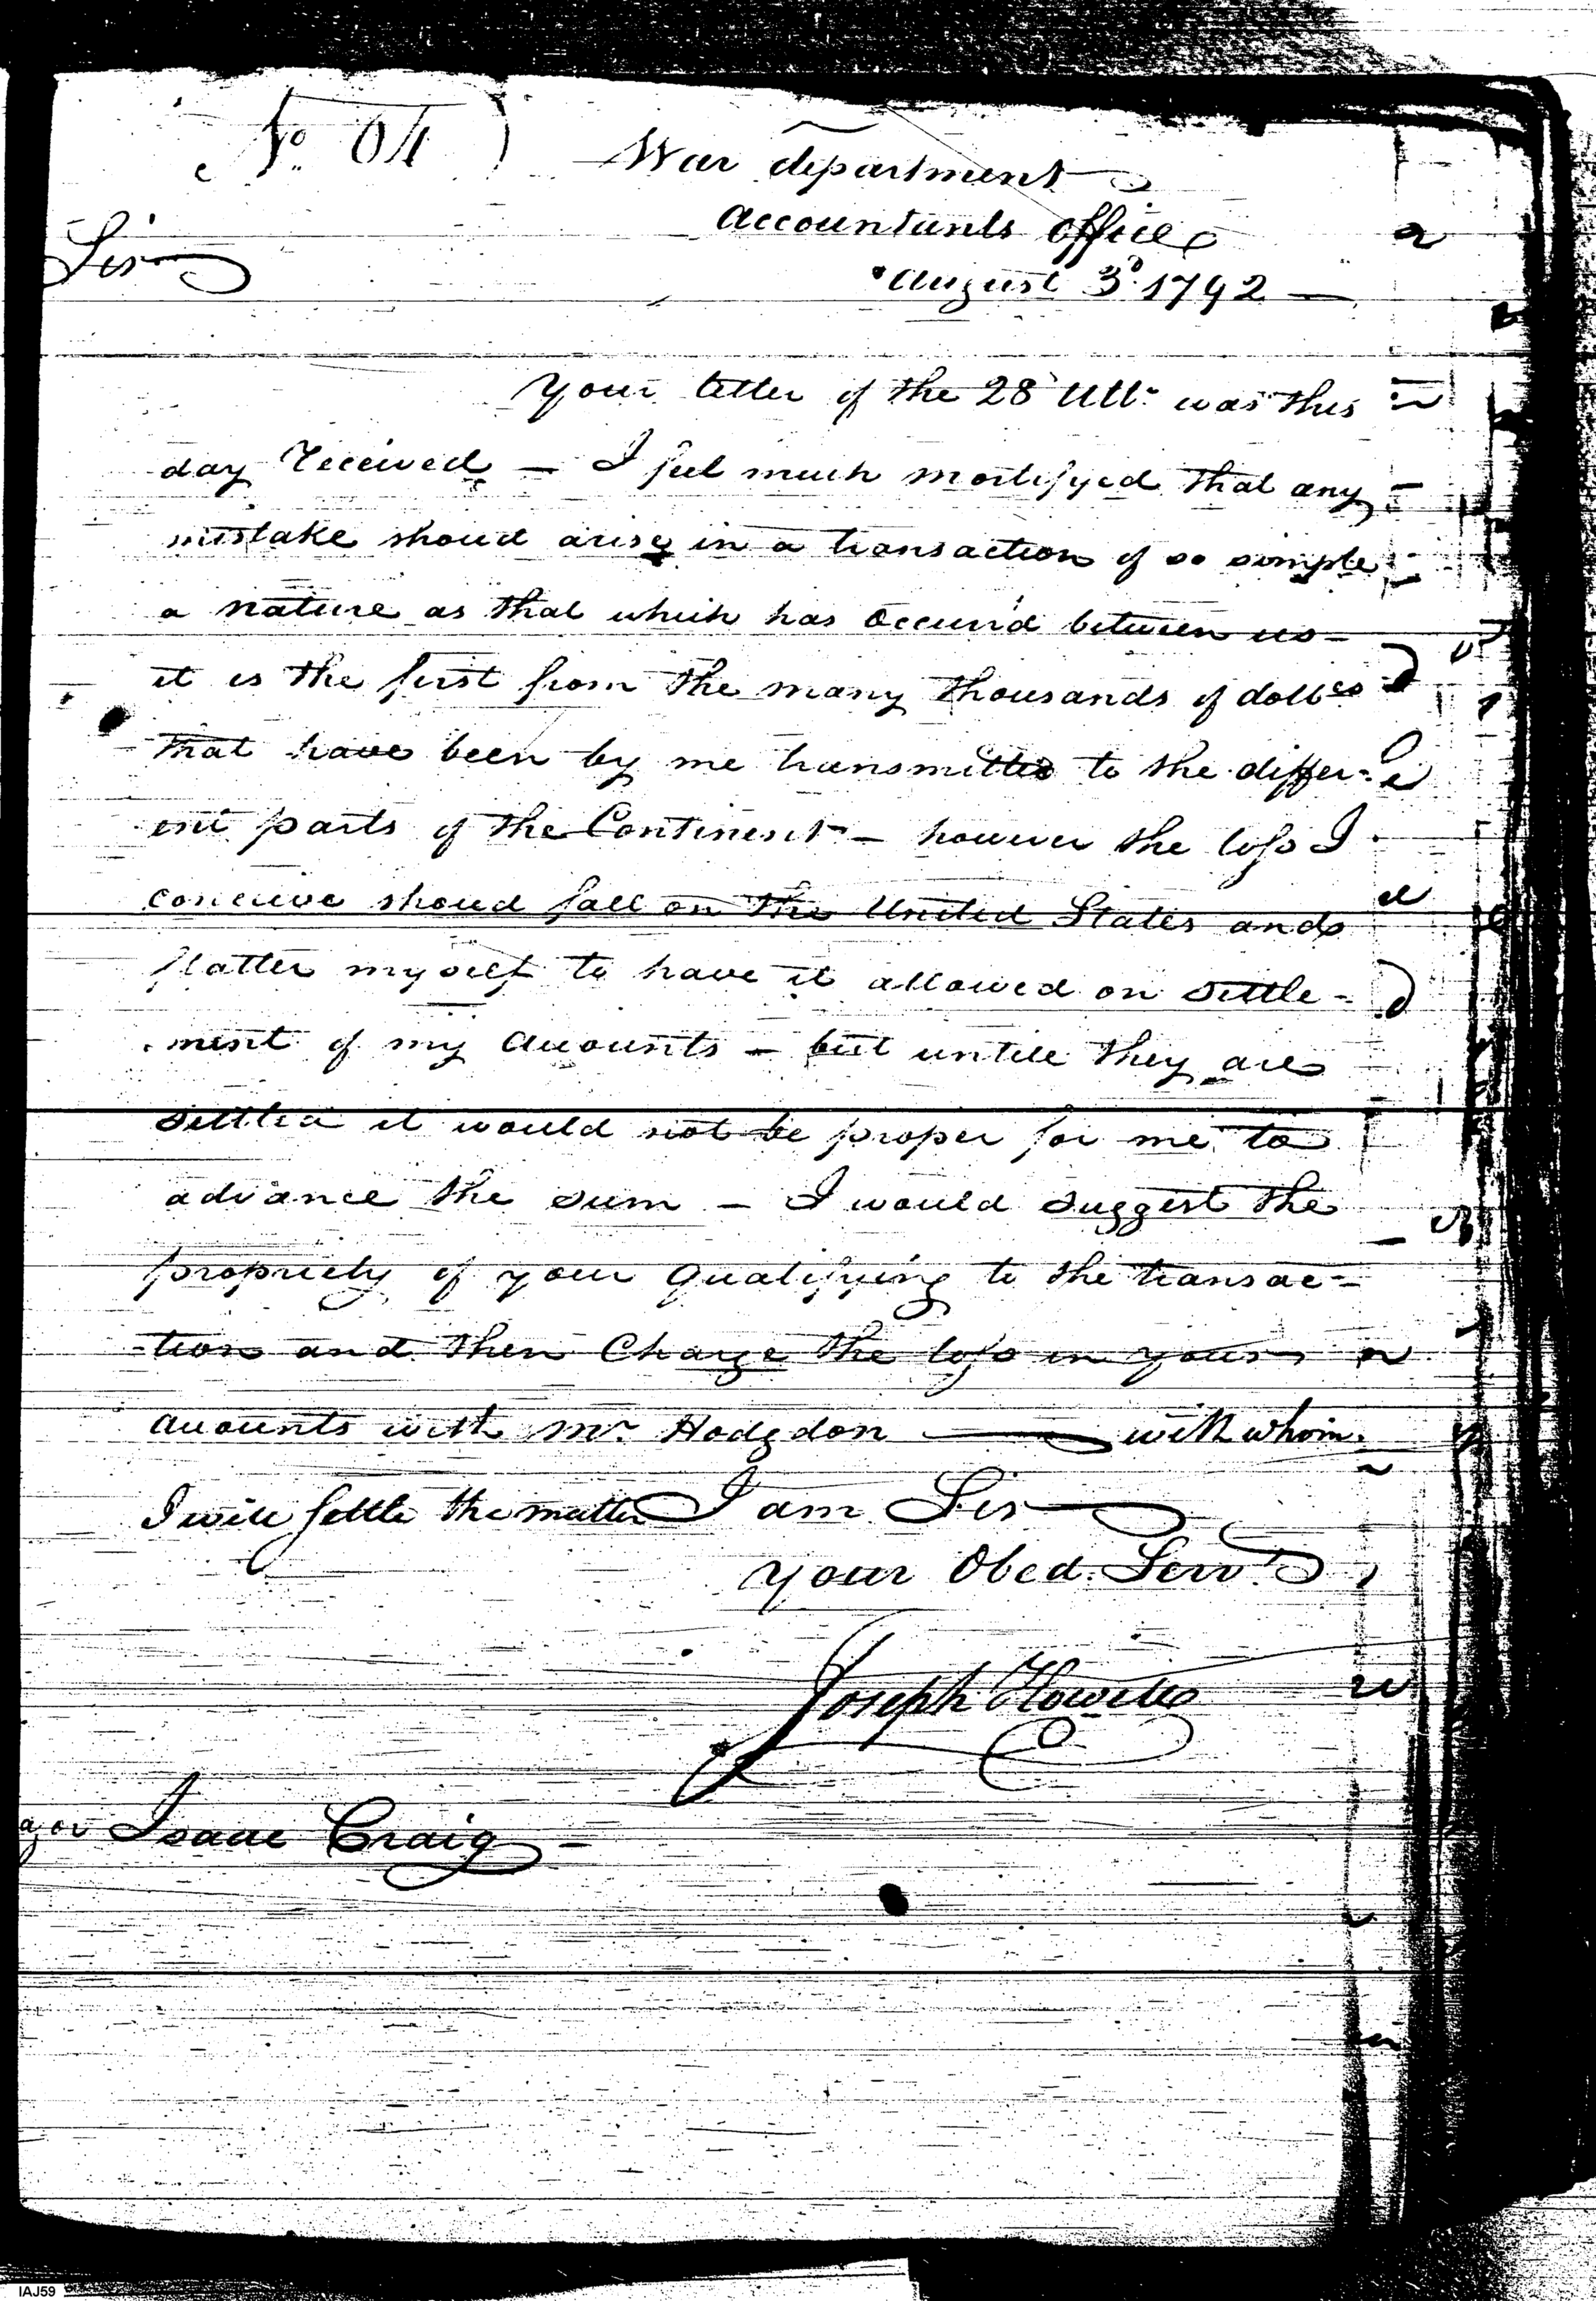 No. 04
War department
accountants office
Sir
august 3d. 1792
your letter of the 28 Ulto. was this
day received — I feel much mortifyed that any
mistake shoud arise in a transaction of so simple
a nature as that which has occurr'd between us —
it is the first from the many thousands of dollrs
that have been by me transmitted to the differ-
ent parts of the Continent — however the loss I
conceive shoud fall on the United States and
flatter myself to have it allowed on settle-
ment of my accounts — but untill they are
settled it would not be proper for me to
advance the sum — I would suggest the
propriety of your qualifying to the transac-
tion and then Charge the loss in your
accounts with Mr. Hodgdon — with whom
I will settle the matter I am Sir
your Obed. Servt.
Joseph Howell
ajor Isaac Craig —
IAJ59